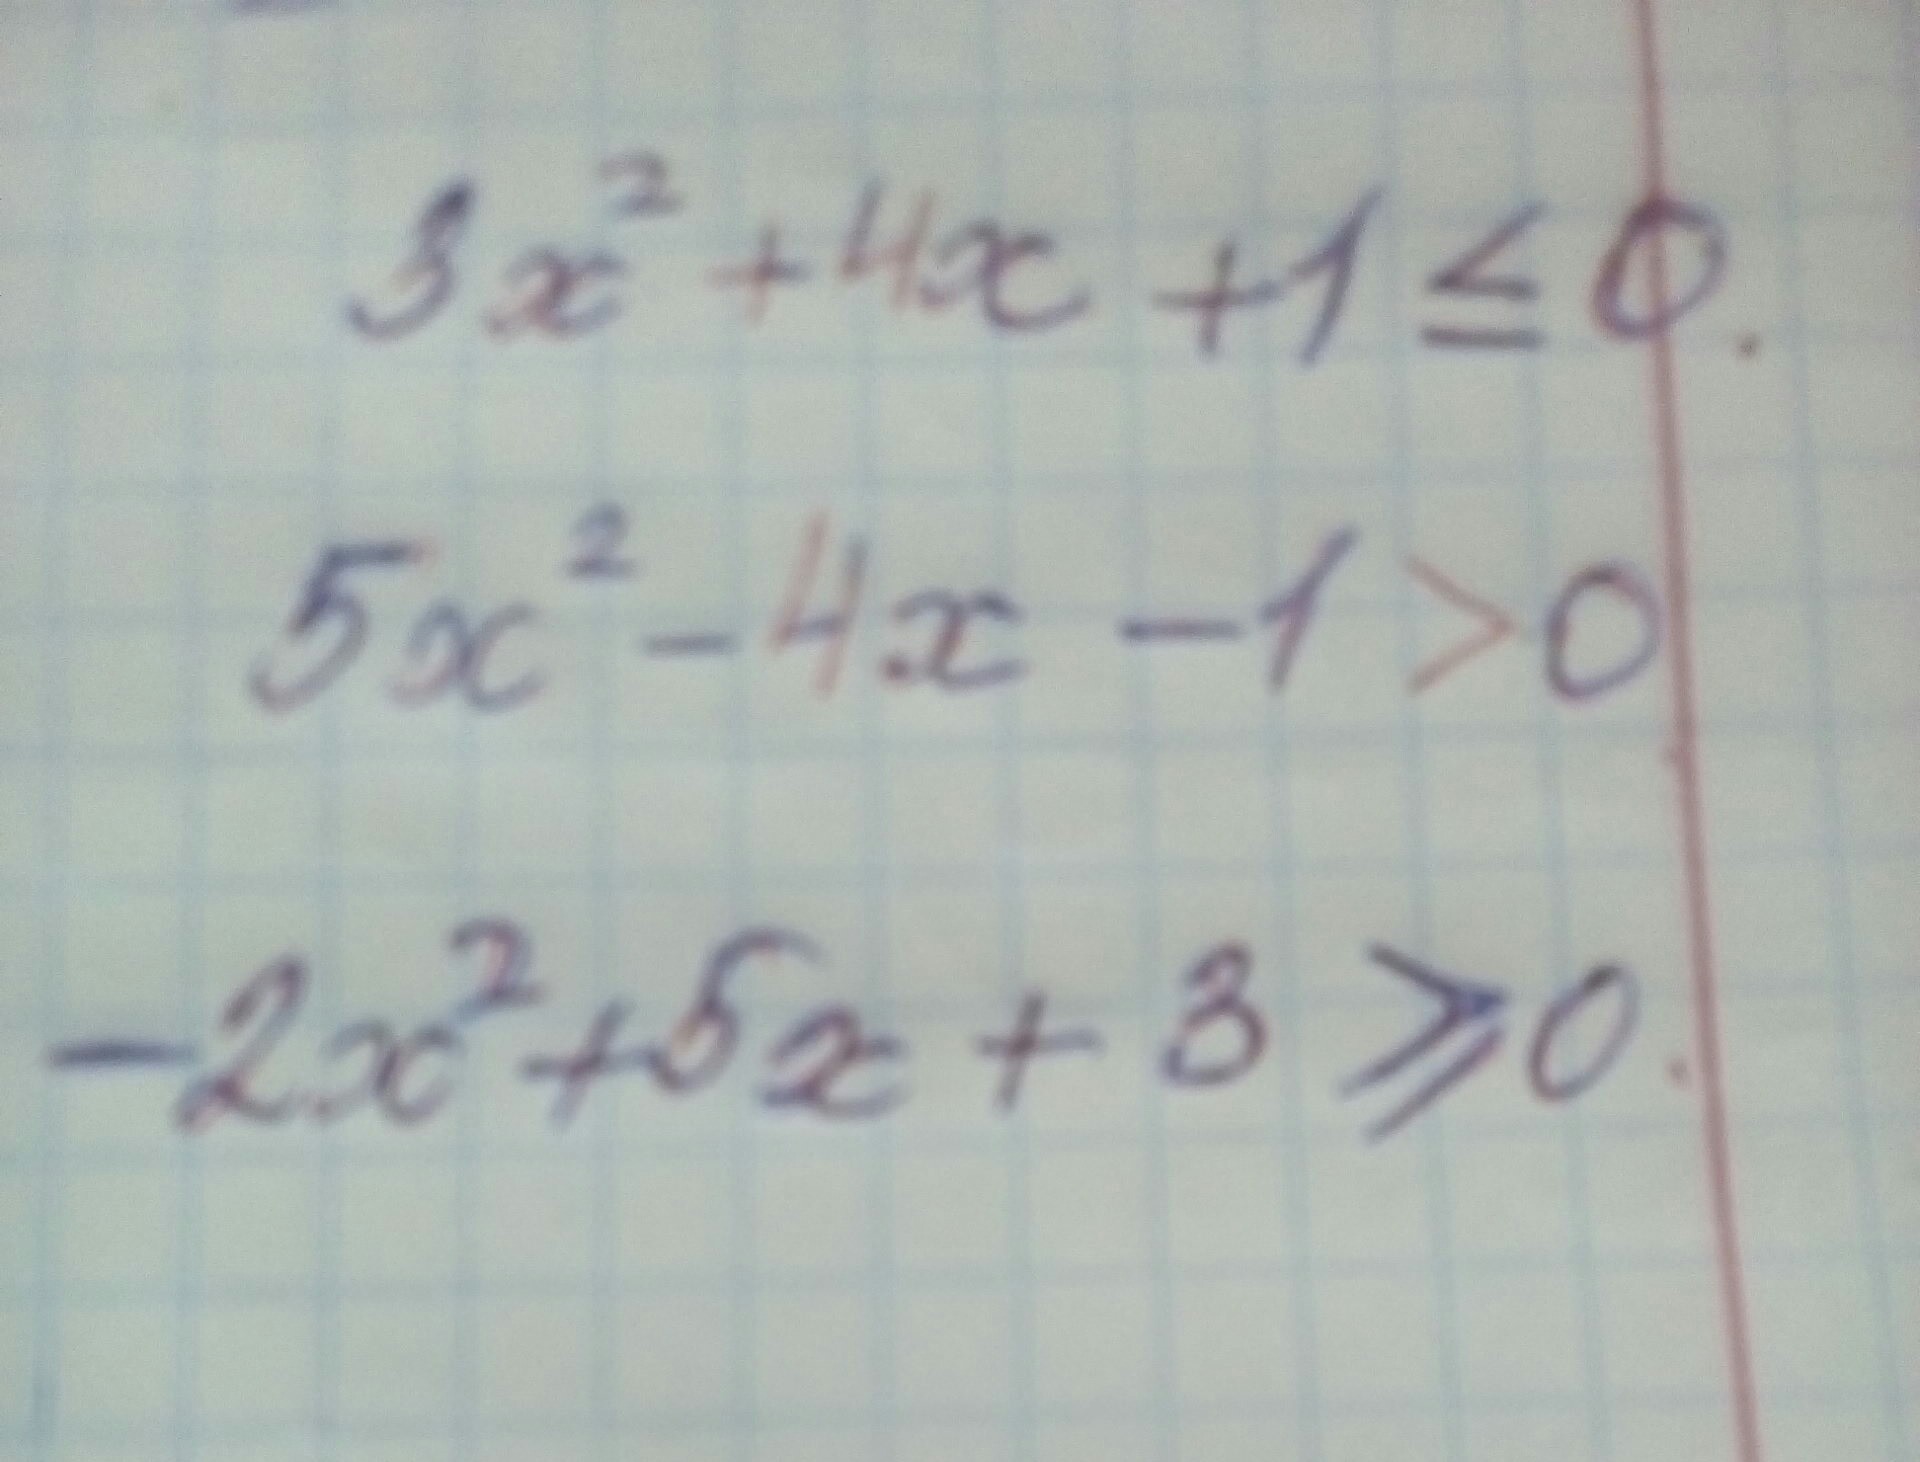 3x² + 4x + 1 ≤ 0.
5x² - 4x - 1 > 0
-2x² + 5x + 3 ⩾ 0.